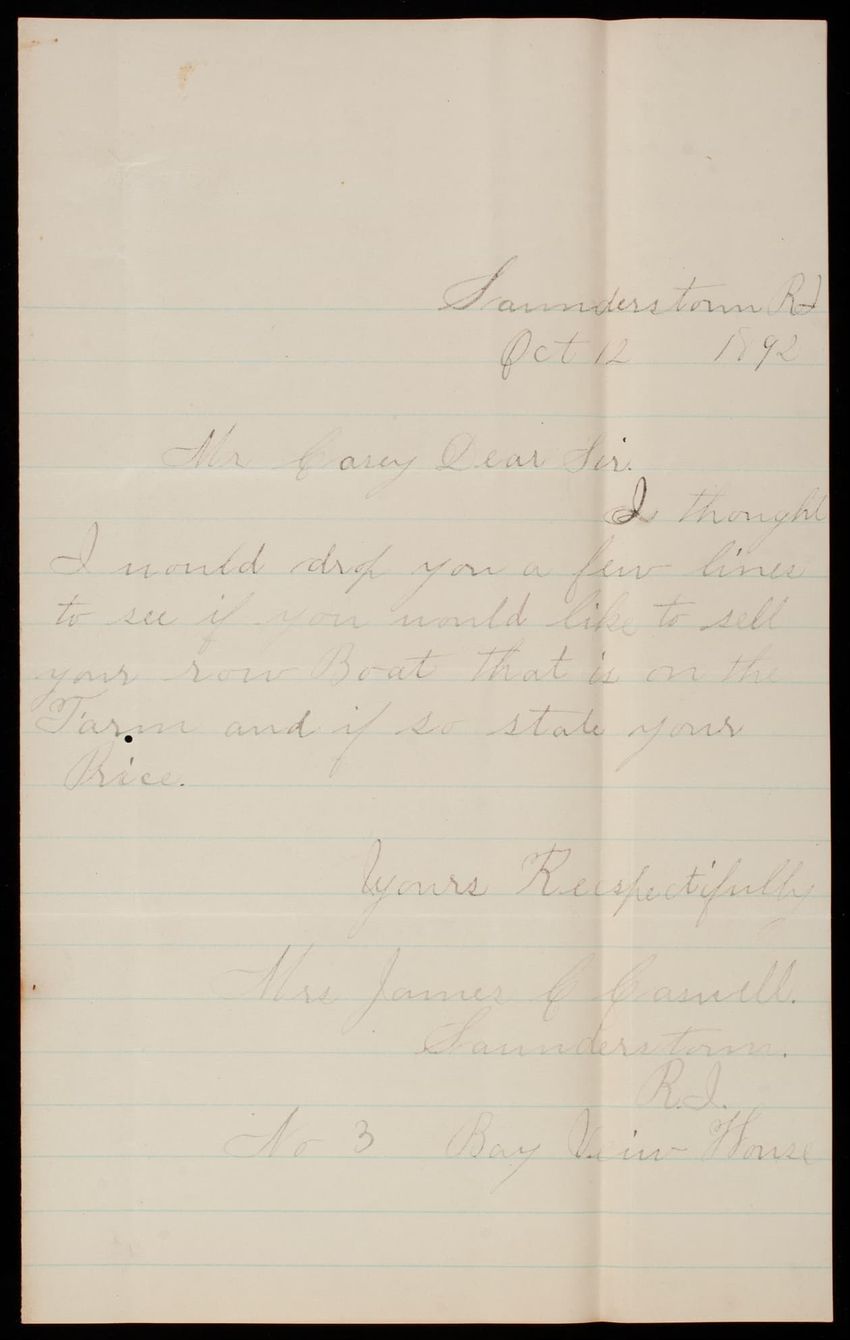 Saunderstown RI
Oct 12 1892
Mr Casey Dear Sir.
I thought
I would drop you a few lines
to see if you would like to sell
your row Boat that is on the
Farm and if so state your
Price.
Yours Recspectifully
Mrs James C Caswell.
Saunderstown.
R.I.
No 3 Bay Veiw House